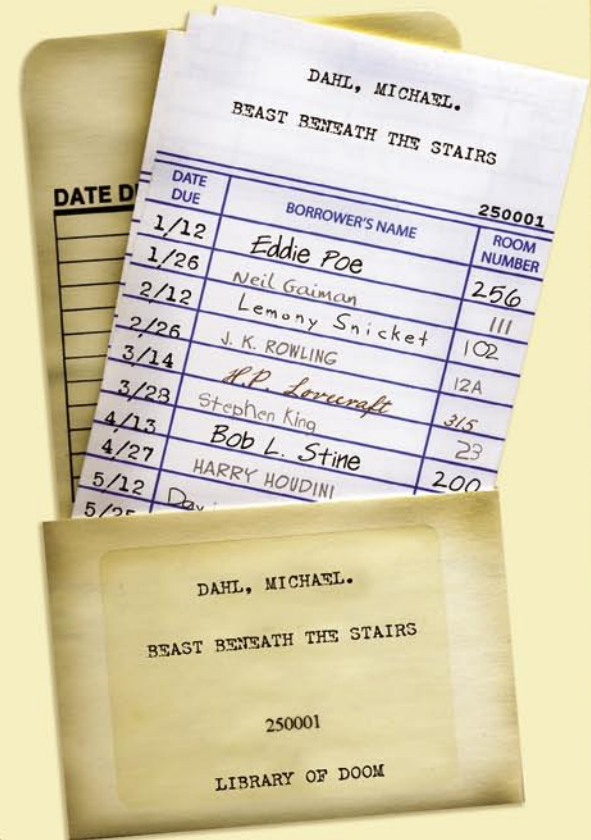 DAHL, MICHAEL.
BEAST BENEATH THE STAIRS
250001
DATE
DATE DUE BORROWER'S NAME ROOM NUMBER
1/12 Eddie Poe 256
1/26 Neil Gaiman 111
2/12 Lemony Snicket 102
2/26 J. K. ROWLING 12A
3/14 H.P. Lovecraft 315
3/28 Stephen King 23
4/13 Bob L. Stine 200
4/27 HARRY HOUDINI
5/12
DAHL, MICHAEL.
BEAST BENEATH THE STAIRS
250001
LIBRARY OF DOOM